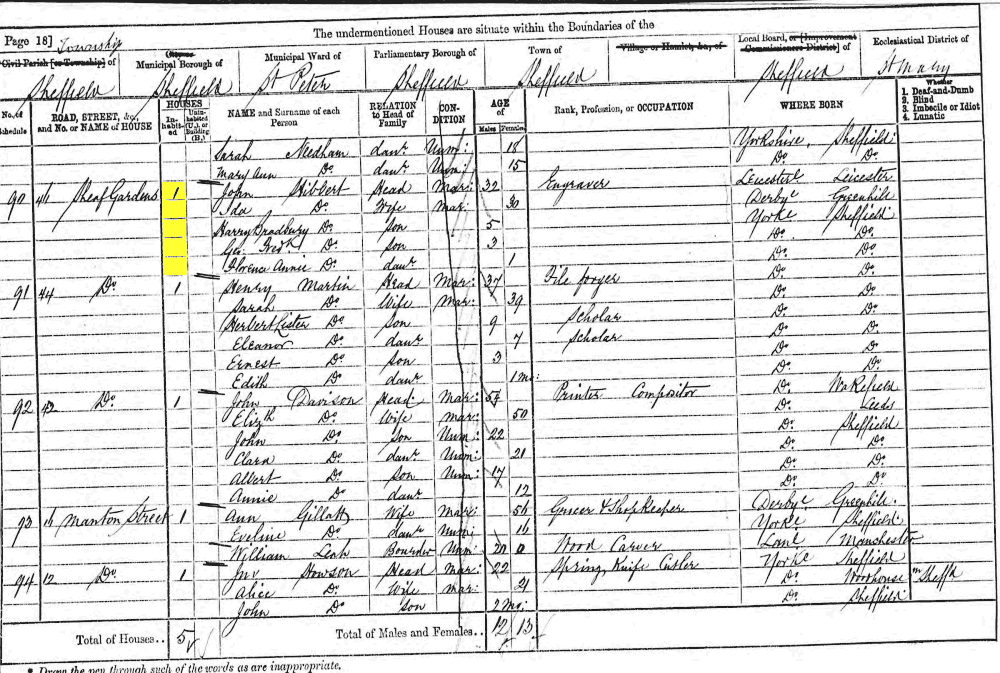 Page 18] The undermentioned Houses are situate within the Boundaries of the
Township
Civil Parish [or Township] of Municipal Borough of Municipal Ward of Parliamentary Borough of Town of Village or Hamlet, &c., of Local Board, or [Improvement Commissioners District] of Ecclesiastical District of
Sheffield Sheffield St Peter Sheffield Sheffield Sheffield St Mary
No. of Schedule ROAD, STREET, &c., and No. or NAME of HOUSE HOUSES Inhabited Uninhabited (U.), or Building (B.) NAME and Surname of each Person RELATION to Head of Family CONDITION AGE of Males Females Rank, Profession, or OCCUPATION WHERE BORN Whether 1. Deaf-and-Dumb 2. Blind 3. Imbecile or Idiot 4. Lunatic
Sarah Needham daur Unm: 18 Yorkshire, Sheffield
Mary Ann Do daur Unm: 15 Do Do
90 46 Sheaf Gardens 1 John Hibbert Head Mar: 32 Engraver Leicester Leicester
Ida Do Wife mar: 30 Derby Greenhill
Harry Bradbury Do son 5 Yorke Sheffield
Geo: Fredk Do son 3 Do Do
Florence Annie Do daur 1 Do Do
91 44 Do 1 Henry Martin Head Mar: 37 File forger Do Do
Sarah Do Wife Mar: 39 Do Do
Herbert Lister Do son 9 Scholar Do Do
Eleanor Do daur 7 Scholar Do Do
Ernest Do son 3 Do Do
Edith Do daur 1 mo: Do Do
92 42 Do 1 John Davison Head Mar: 54 Printer Compositor Do Wakefield
Elizth Do Wife mar: 50 Do Leeds
John Do son Unm: 22 Do Sheffield
Clara Do daur Unm: 21 Do Do
Albert Do son Unm: 17 Do Do
Annie Do daur 12 Do Do
93 16 Manton Street 1 Ann Gillatt Wife Mar: 56 Grocer & Shopkeeper Derby Greenhill
Eveline Do daur Unm: 16 Yorke Sheffield
William Leah Boarder Unm: 20 Wood Carver Lanc Manchester
94 12 Do 1 Jno Howson Head Mar: 22 Spring Knife Cutler Yorke Sheffield
Alice Do Wife mar: 21 Do Woodhouse nr Sheffd
John Do son 2 mo: Do Sheffield
Total of Houses.. 5 Total of Males and Females.. 12 13
* Draw the pen through such of the words as are inappropriate.